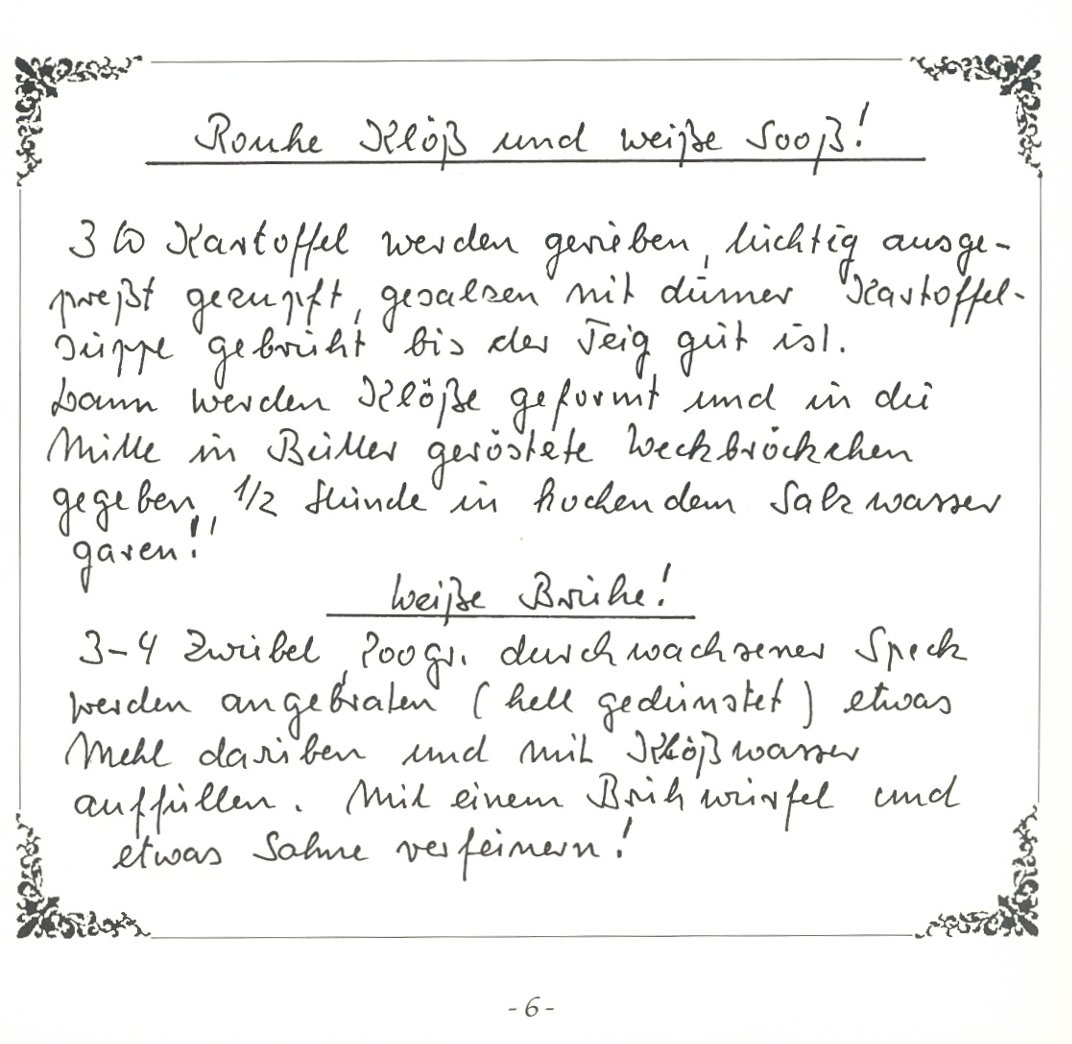 Rouhe Klöß und weiße Sooß!
3 ℔ Kartoffel werden gerieben, tüchtig ausge-
preßt gezupft, gesalzen mit dünner Kartoffel-
suppe gebrüht bis der Teig gut ist.
Dann werden Klöße geformt und in die
Mitte in Butter geröstete Weckbröckchen
gegeben, 1/2 Stunde in kochendem Salzwasser
garen!!
Weiße Brühe!
3-4 Zwiebel, 200 gr. durchwachsener Speck
werden angebraten (hell gedünstet) etwas
Mehl darüben und mit Klößwasser
auffüllen. Mit einem Brühwürfel und
etwas Sahne verfeinern!
-6-